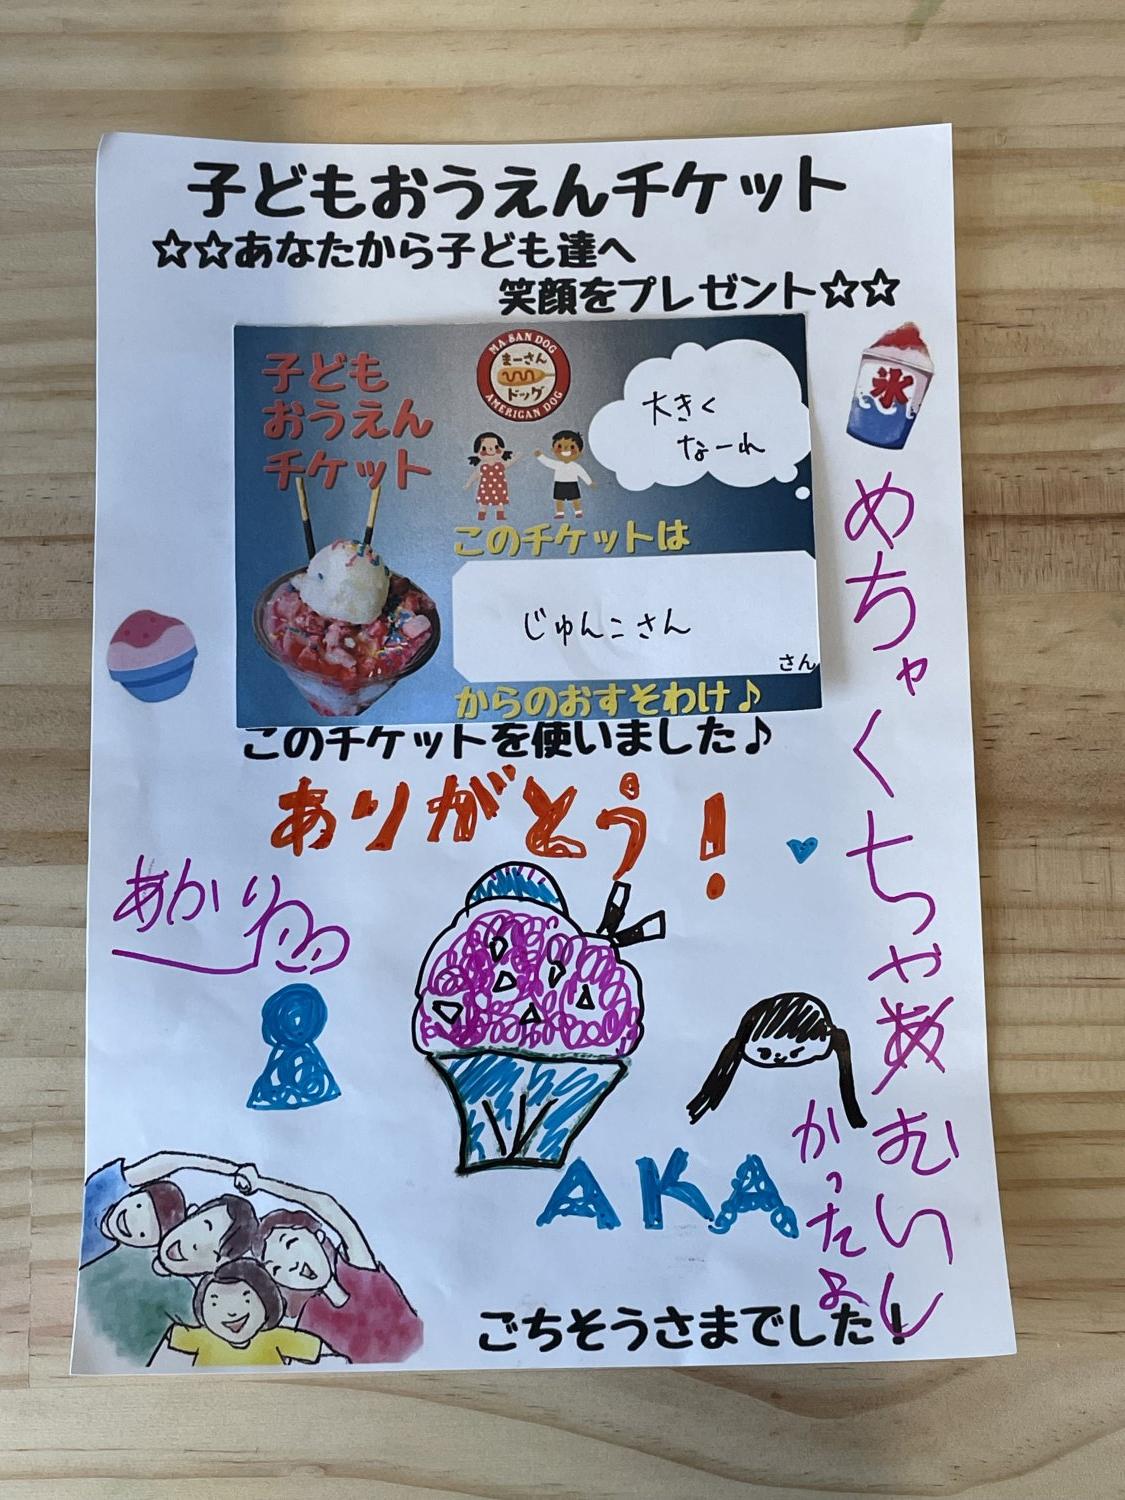 子どもおうえんチケット
☆☆あなたから子ども達へ
笑顔をプレゼント☆☆
子ども
おうえん
チケット
MA SAN DOG
まーさん
ドッグ
AMERICAN DOG
大きく
なーれ
このチケットは
じゅんこさん
さん
からのおすそわけ♪
氷
このチケットを使いました♪
ありがとう!
めちゃくちゃ
かったよ
あかり
AKA
ごちそうさまでした!